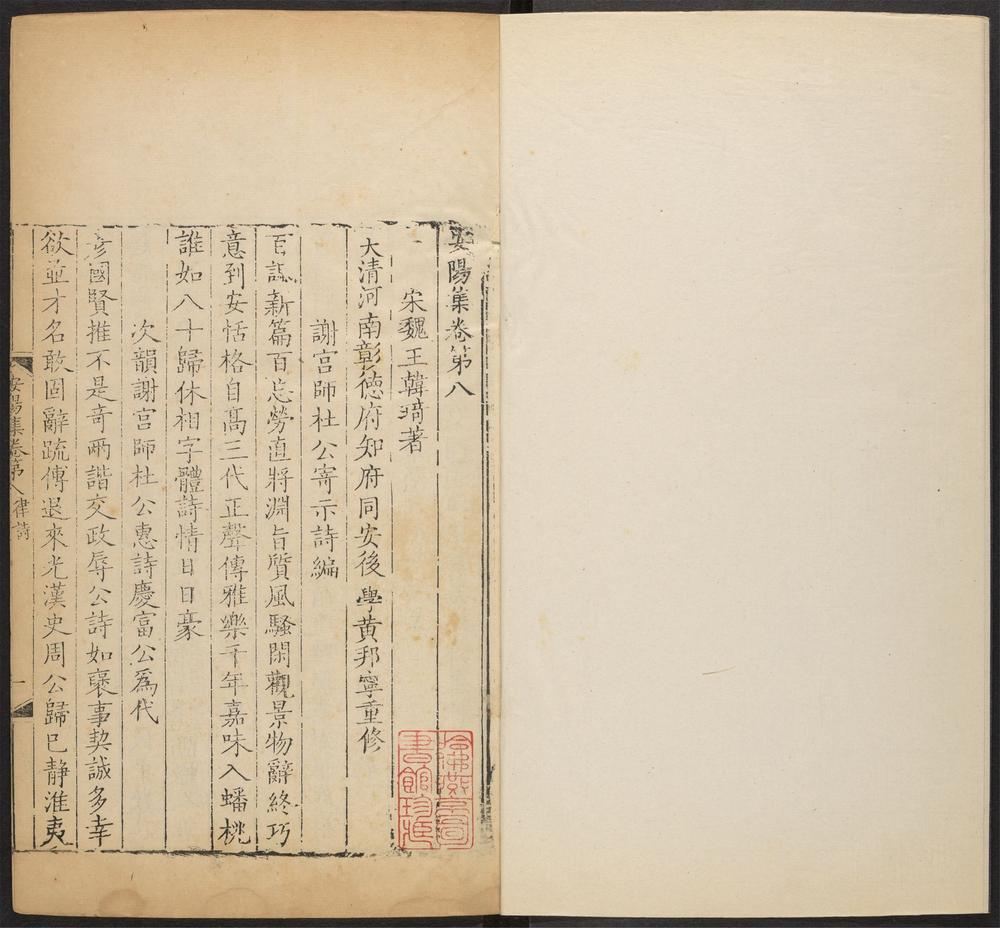 安陽集卷第八
宋魏王韓琦著
大清河南彰德府知府同安後學黃邦寧重修
謝宮師杜公寄示詩編
百讀新篇百忘勞直將淵旨質風騷閑觀景物辭終巧
意到安恬格自高三代正聲傳雅樂千年嘉味入蟠桃
誰如八十歸休相字體詩情日日豪
次韻謝宮師杜公惠詩慶富公爲代
彥國賢推不是奇兩諧交政辱公詩如褒事契誠多幸
欲並才名敢固辭疏傳退來光漢史周公歸巳靜淮夷
安陽集卷第八 律詩
一
哈佛燕京圖書館珍藏